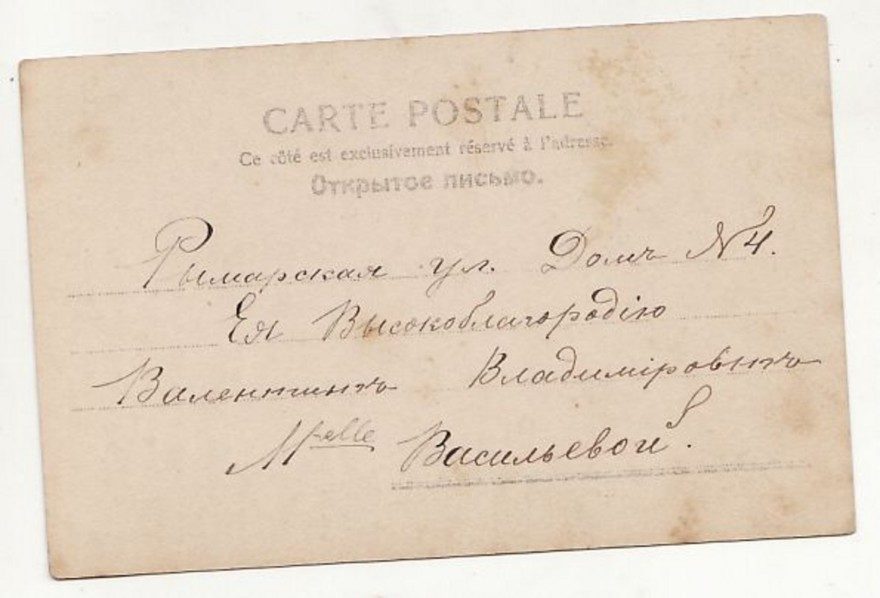 CARTE POSTALE
Ce côté est exclusivement réservé à l'adresse.
Открытое письмо.
Рымарская ул. Домъ № 4.
Ея Высокоблагородію
Валентинѣ Владиміровнѣ
M-elle Васильевой.